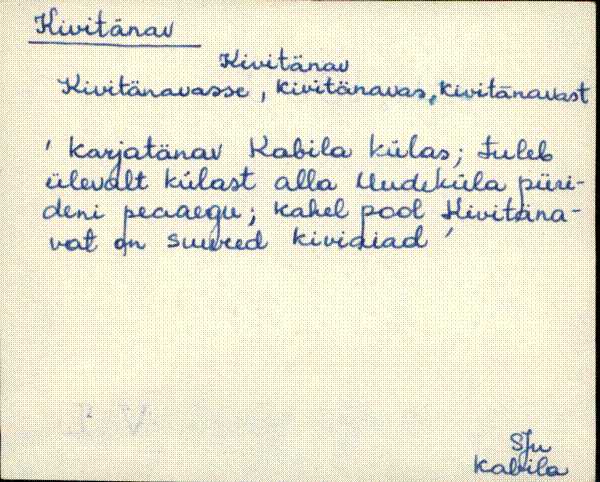 Kivitänav
Kivitänav
Kivitänavasse, kivitänavas, kivitänavast
' karjatänav Kabila külas; tuleb
ülevält külast alla Uudeküla piiri-
deni peaaegu; kahel pool Kivitäna-
vat on suured kiviaiad '
SJu
Kabila